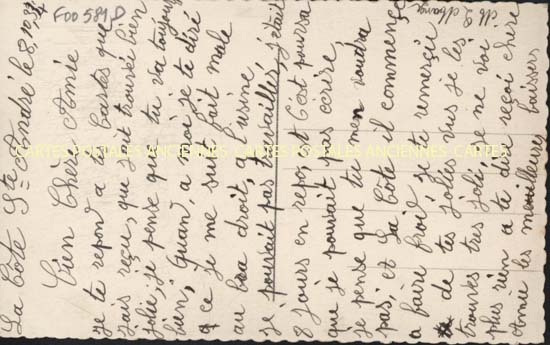 La Côte St André le 8.12.
Bien Chere Amie
Je te repond a cartes que
j'ais reçu, que j'ait trouvée bien
jolie, je pense que tu va toujours
bien, Quand, a moi je te diré
q ce je me sui fait male
au bou droit, a l'usine
je pouvait pas travaillés, j'étais
8 jours en repos, et C'ést pourså
que je pouvait pas écrire
je pense que tu m'en voudra
pas, et La Côte il commence
a faire froid, je te remerçie
de tes jolie vus je les
trouves tres jolie, je ne voi
plus rien a te dire, reçoi chère
Amie les meilleures baisers
F00589D
CARTES POSTALES ANCIENNES CARTES POSTALES ANCIENNES CARTES